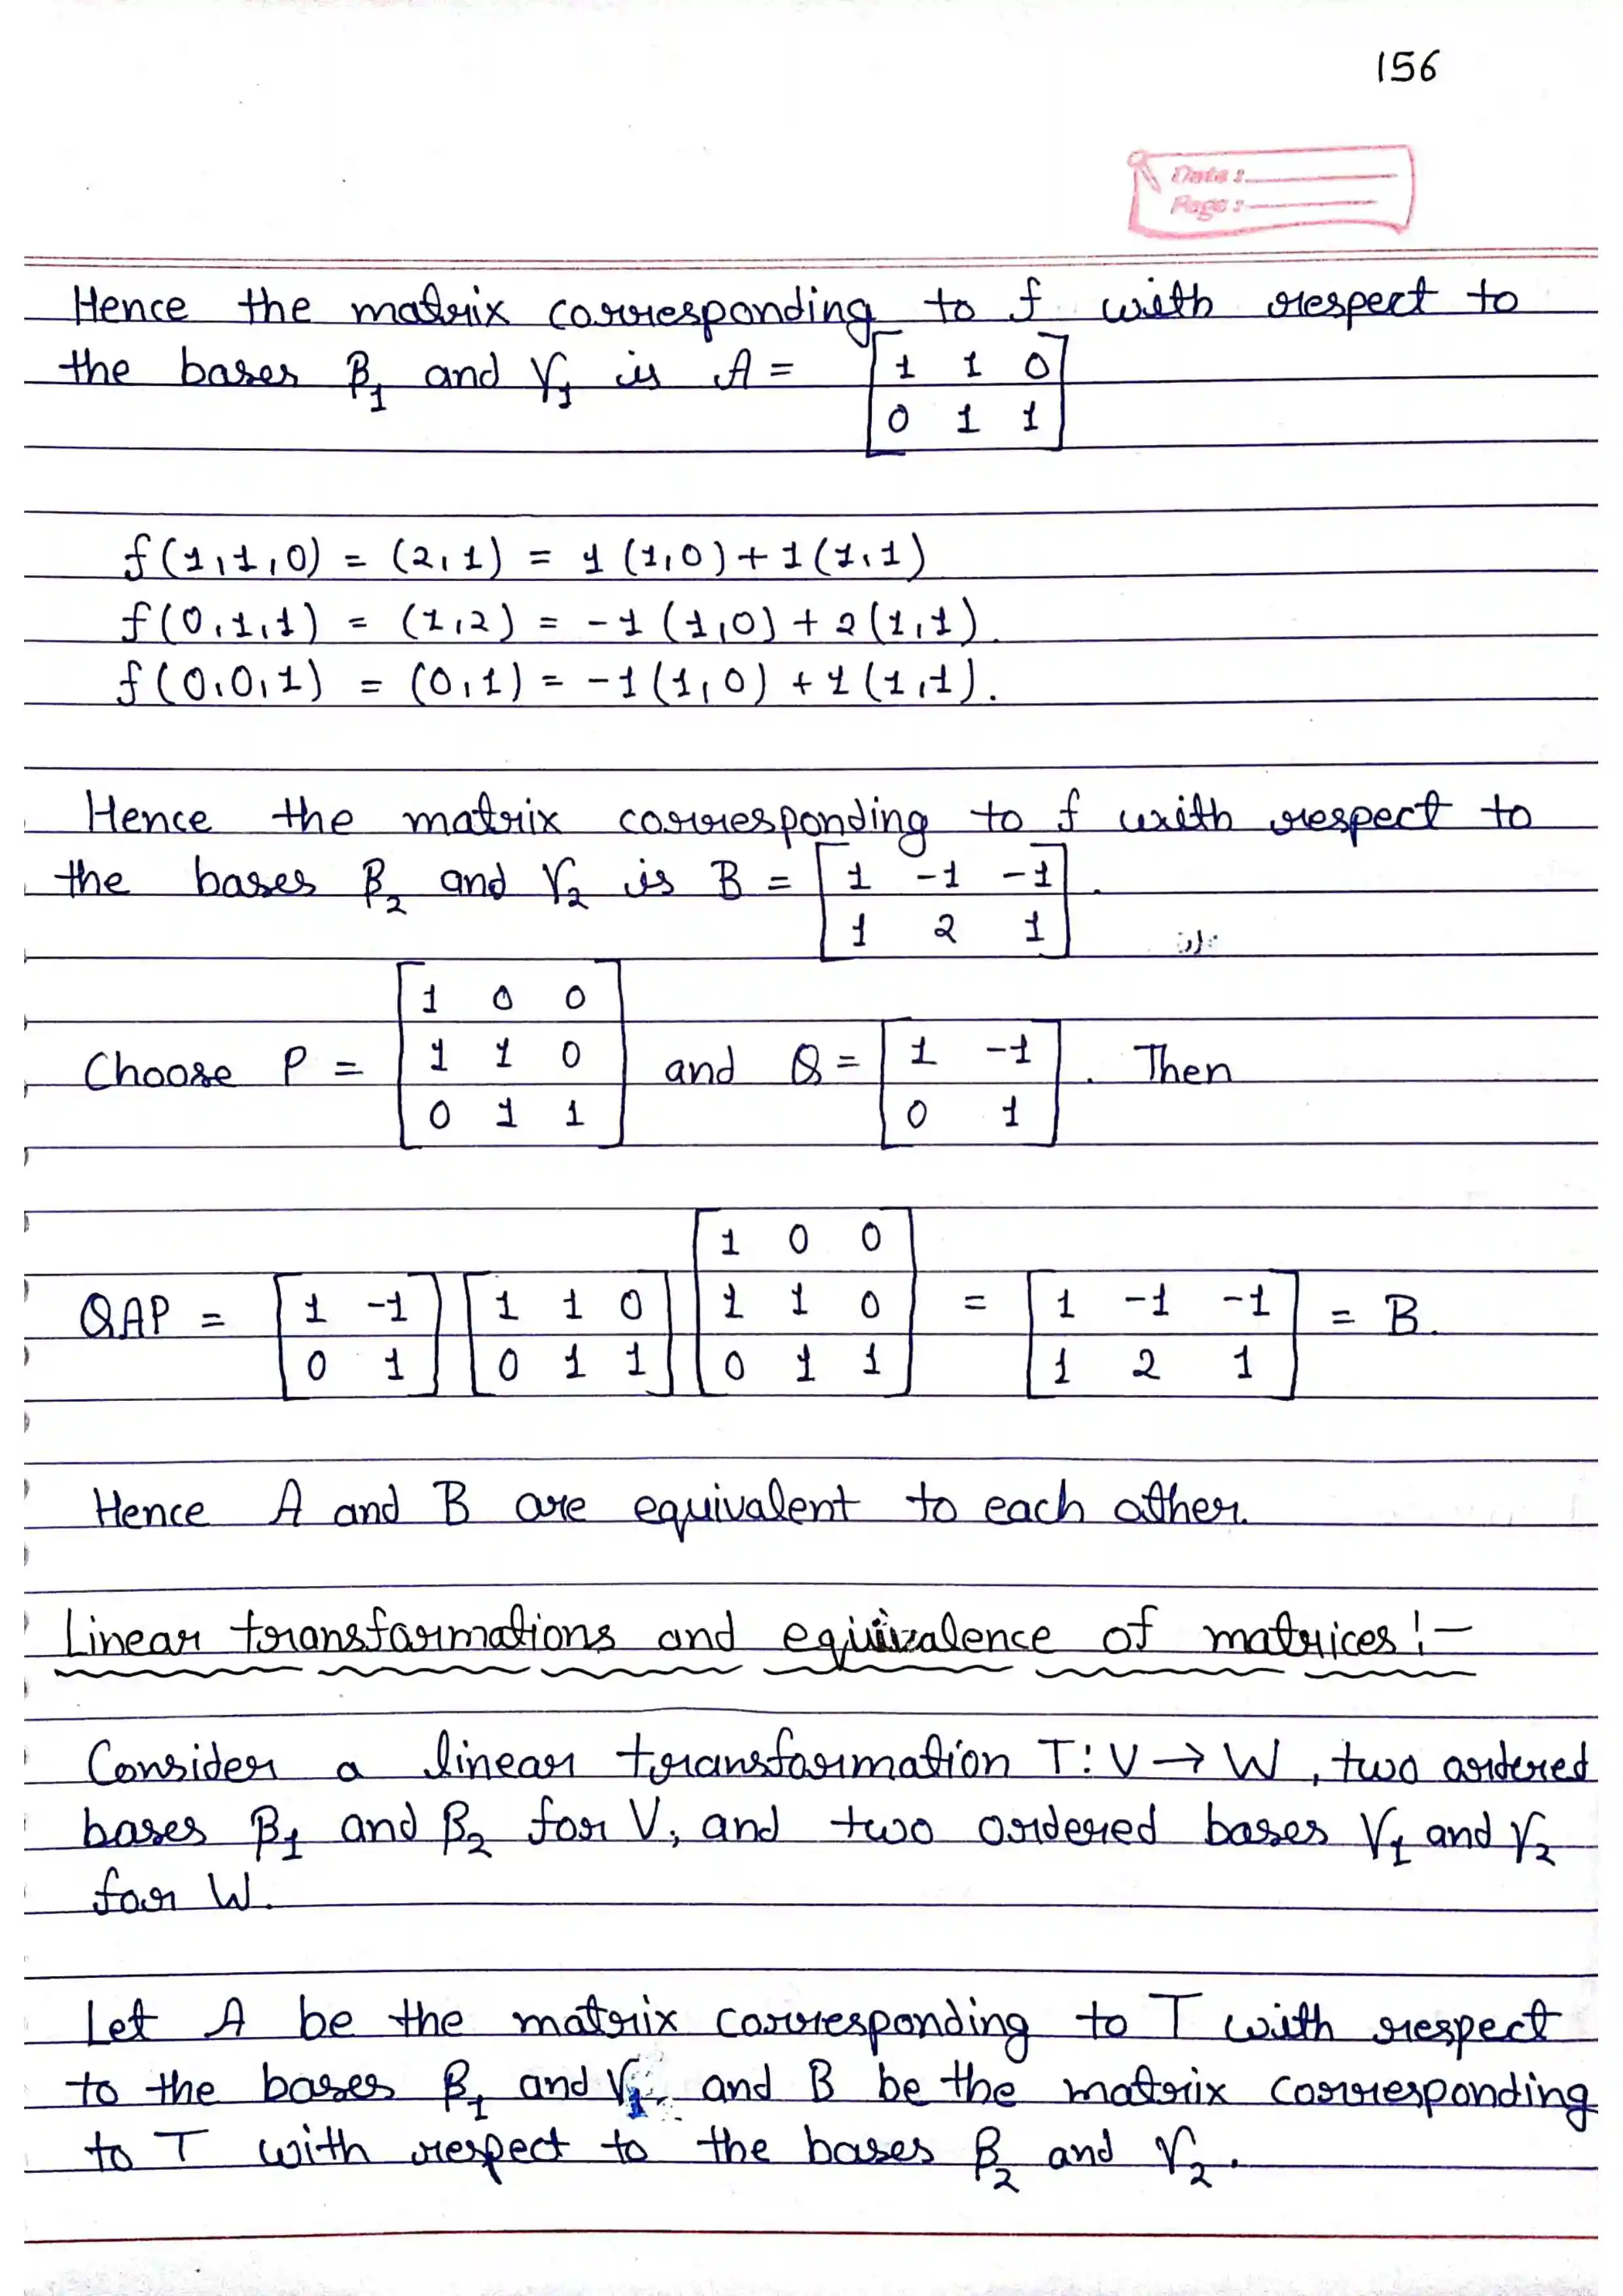 156
Date :
Page :
Hence the matrix corresponding to f with respect to
the bases β₁ and γ₁ is A = [1 1 0
0 1 1]
f(1,1,0) = (2,1) = 1(1,0) + 1(1,1)
f(0,1,1) = (1,2) = -1(1,0) + 2(1,1).
f(0,0,1) = (0,1) = -1(1,0) + 1(1,1).
Hence the matrix corresponding to f with respect to
the bases β₂ and γ₂ is B = [1 -1 -1
1 2 1].
Choose P = [1 0 0
1 1 0
0 1 1] and Q = [1 -1
0 1]. Then
QAP = [1 -1
0 1] [1 1 0
0 1 1] [1 0 0
1 1 0
0 1 1] = [1 -1 -1
1 2 1] = B.
Hence A and B are equivalent to each other.
Linear transformations and equivalence of matrices :-
Consider a linear transformation T: V → W, two ordered
bases β₁ and β₂ for V, and two ordered bases γ₁ and γ₂
for W.
Let A be the matrix corresponding to T with respect
to the bases β₁ and γ₁, and B be the matrix corresponding
to T with respect to the bases β₂ and γ₂.